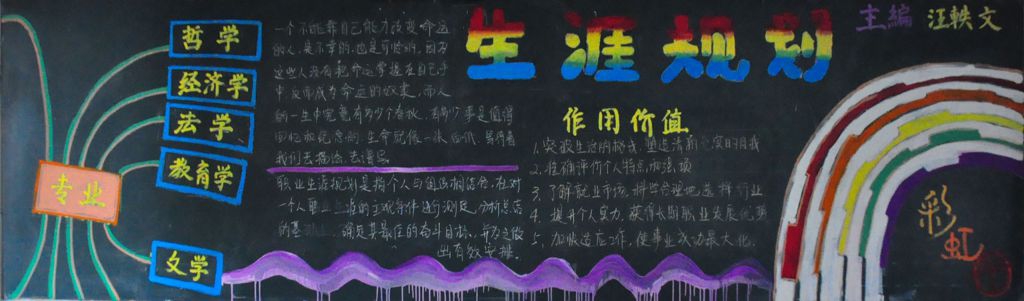 生涯规划
主编 汪轶文
专业
哲学
经济学
法学
教育学
文学
一个不能靠自己能力改变命运
的人,是不幸的,也是可怜的,因为
这些人没有把命运掌握在自己手
中,反而成为命运的奴隶,而人
的一生中究竟有多少个春秋,有多少事是值得
回忆和纪念的,生命就像一张白纸,等待着
我们去描绘,去谱写。
职业生涯规划是指个人与组织相结合,在对
一个人职业生涯的主观条件进行测定、分析总结
的基础上,确定其最佳的奋斗目标,并为之做
出有效安排。
作用价值
1.突破生活的格线 塑造清新充实的自我
2.准确评价个人特点和强项
3.了解就业市场,科学合理地选择行业
4.提升个人实力,获得长期职业发展优势
5.加快适应工作,使事业成功最大化。
彩虹